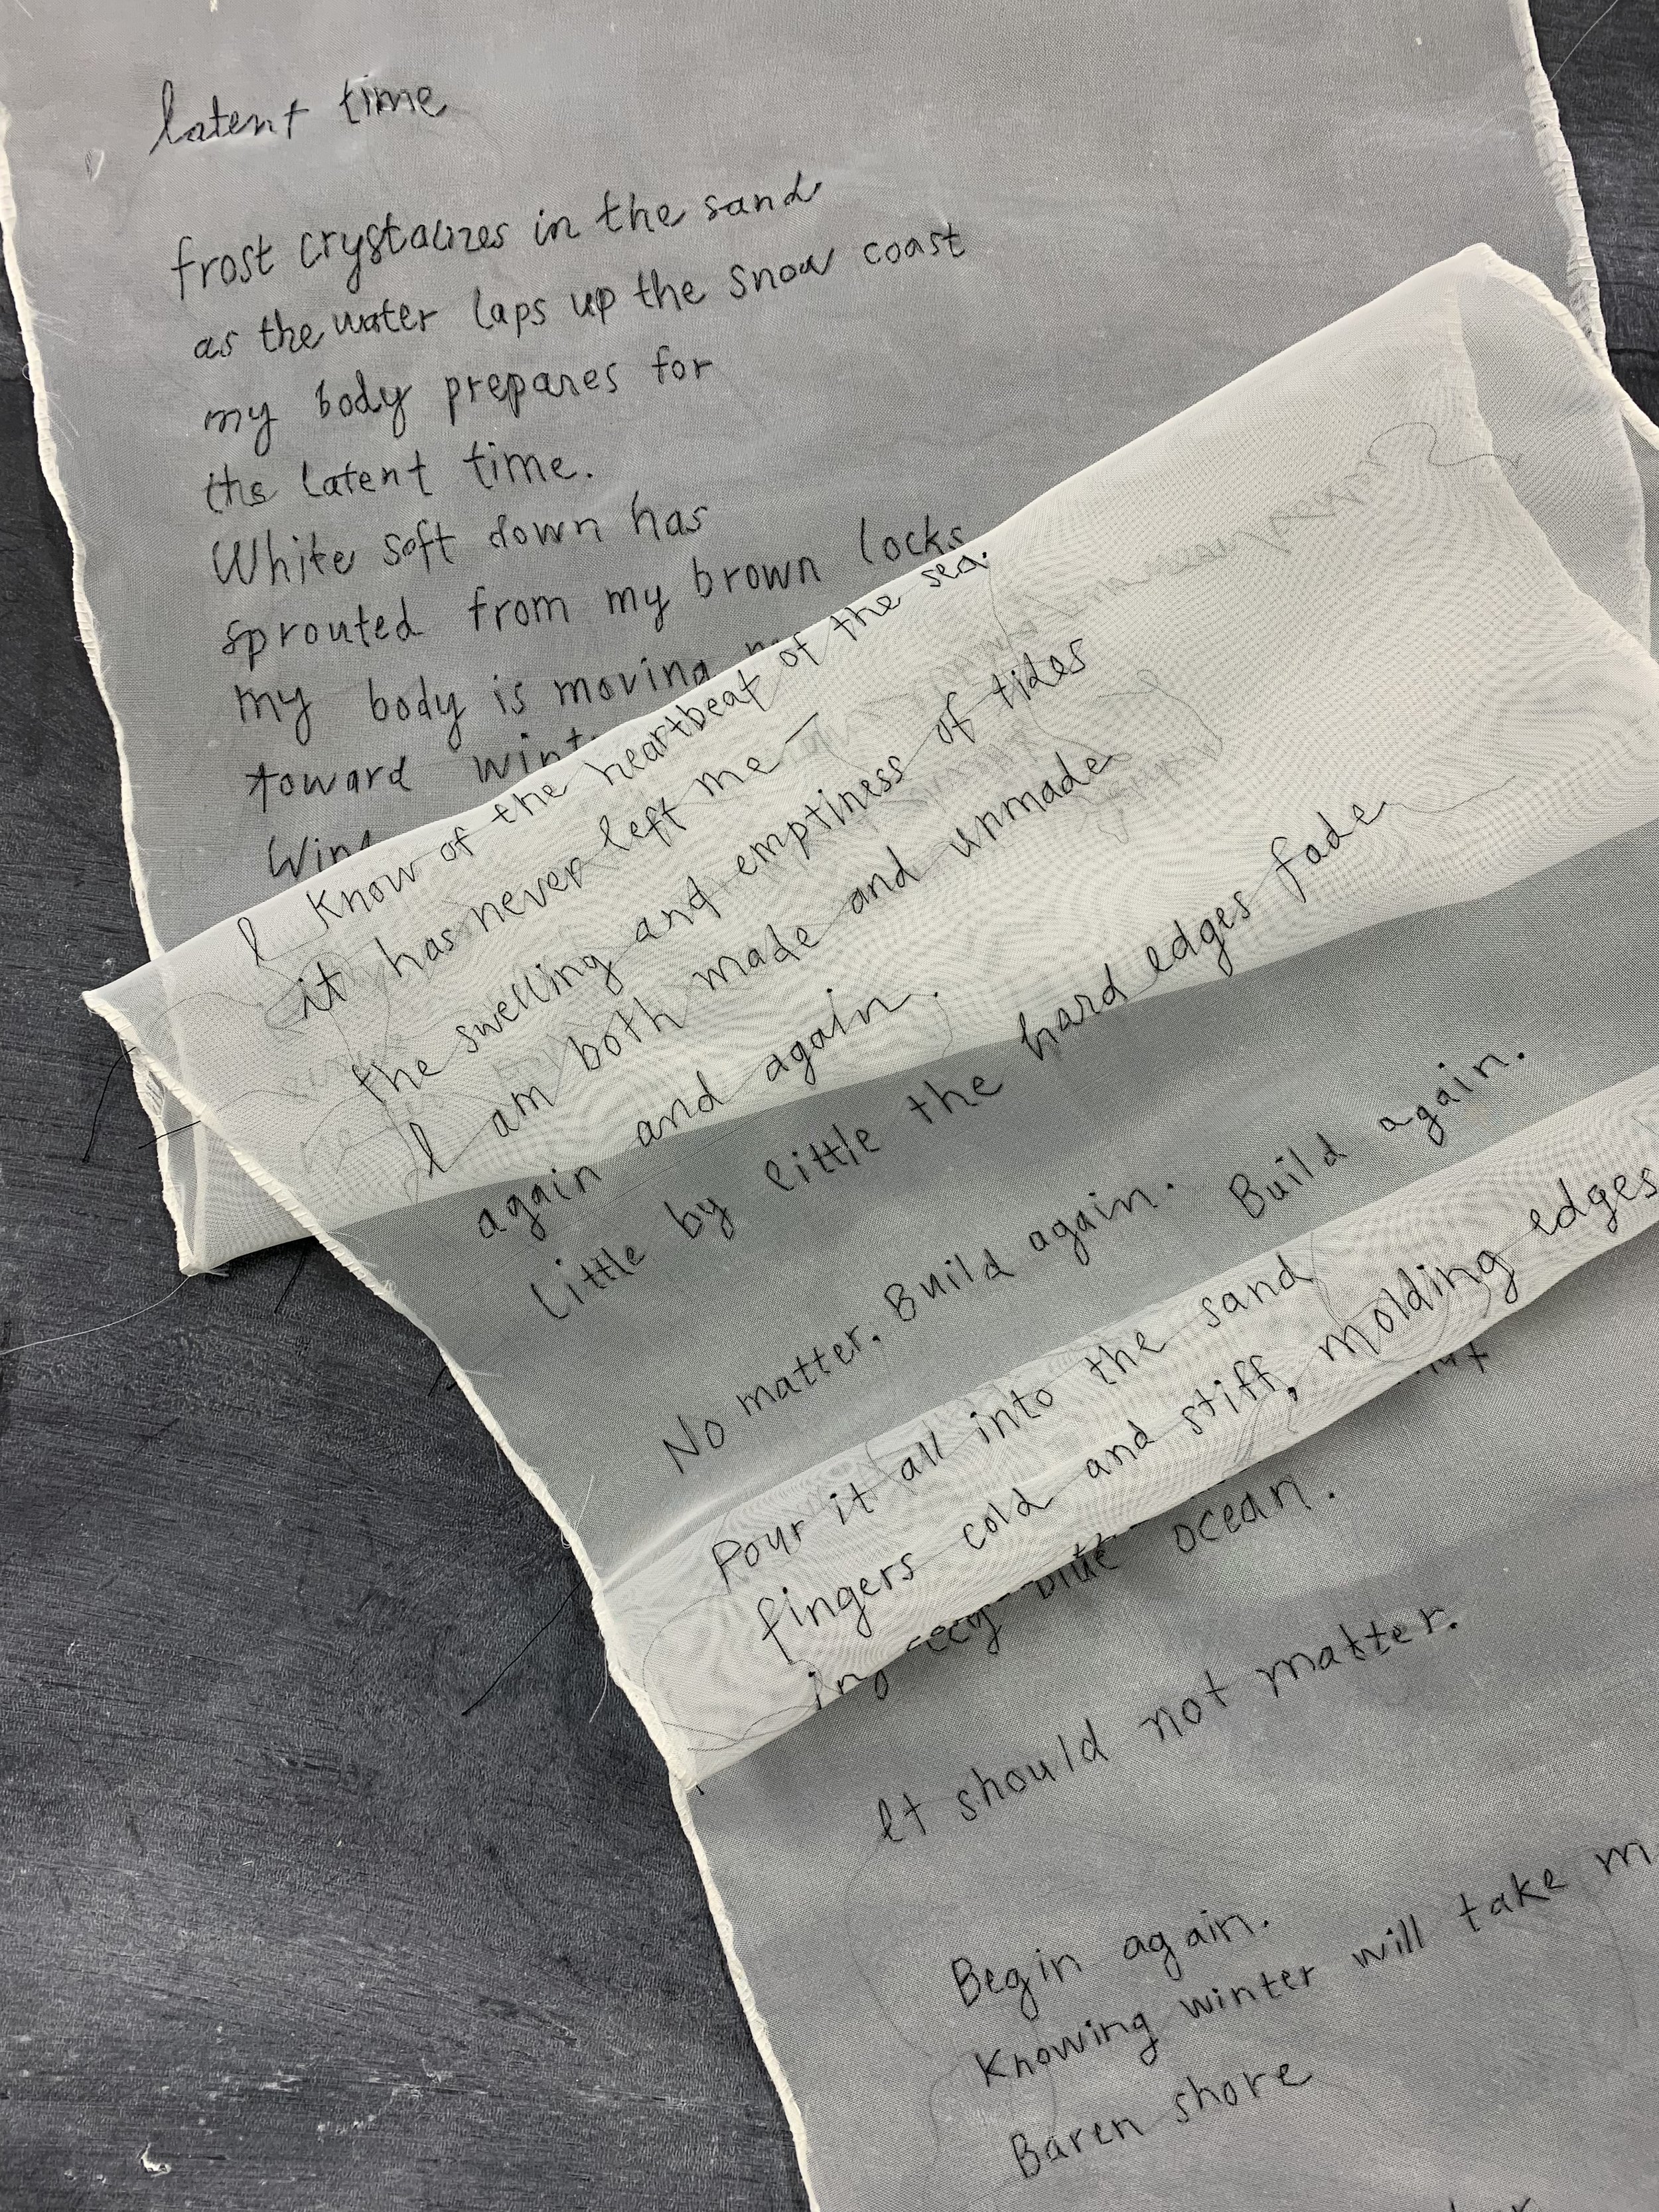 latent time
frost crystalizes in the sand
as the water laps up the snow coast
my body prepares for
the latent time.
White soft down has
sprouted from my brown locks
my body is moving
toward
I know of the heartbeat of the sea.
it has never left me —
the swelling and emptiness of tides
I am both made and unmade
again and again.
little by little the hard edges fade
No matter. Build again. Build again.
Pour it all into the sand
fingers cold and stiff, molding edges
blue ocean.
It should not matter.
Begin again.
Knowing winter will take
Baren shore